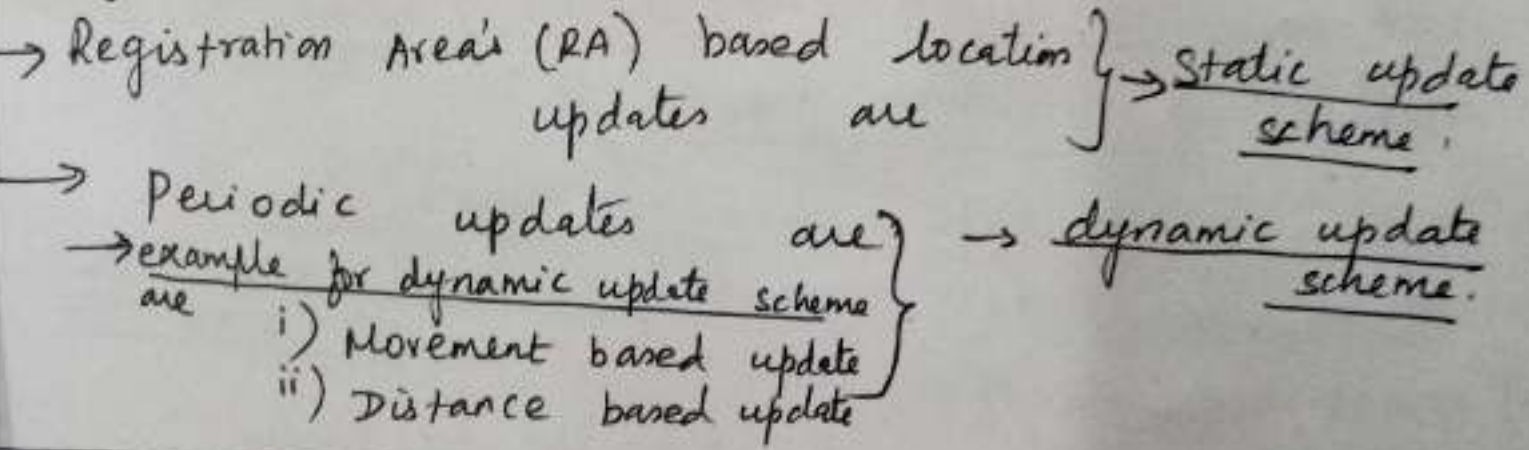 → Registration Area's (RA) based location } → Static update
updates are scheme.
→ Periodic updates are } → dynamic update
→ example for dynamic update scheme scheme.
are
i) Movement based update
ii) Distance based update